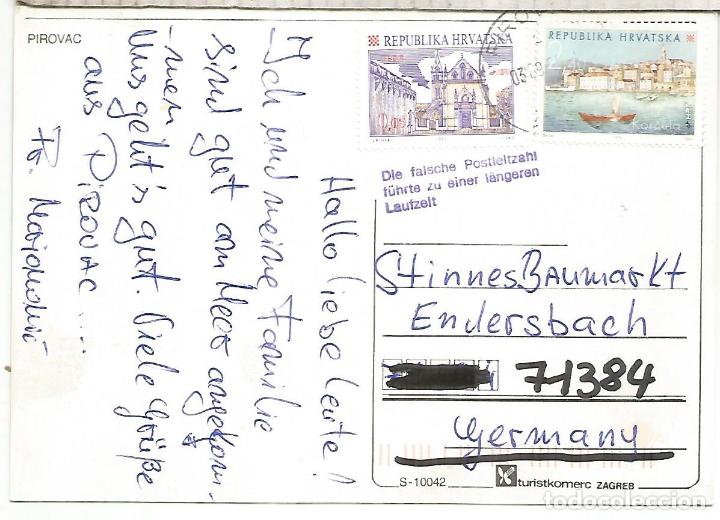 PIROVAC
Hallo liebe Leute!
Ich und meine Familie
sind gut am Meer angekom-
men
Uns geht's gut. Viele Grüße
aus PiROVAC....
REPUBLIKA HRVATSKA
REPUBLIKA HRVATSKA
Korčula
Die falsche Postleitzahl
führte zu einer längeren
Laufzeit
StinnesBAUMARKT
Endersbach
71384
Germany
S-10042
turistkomerc ZAGREB
todocoleccion